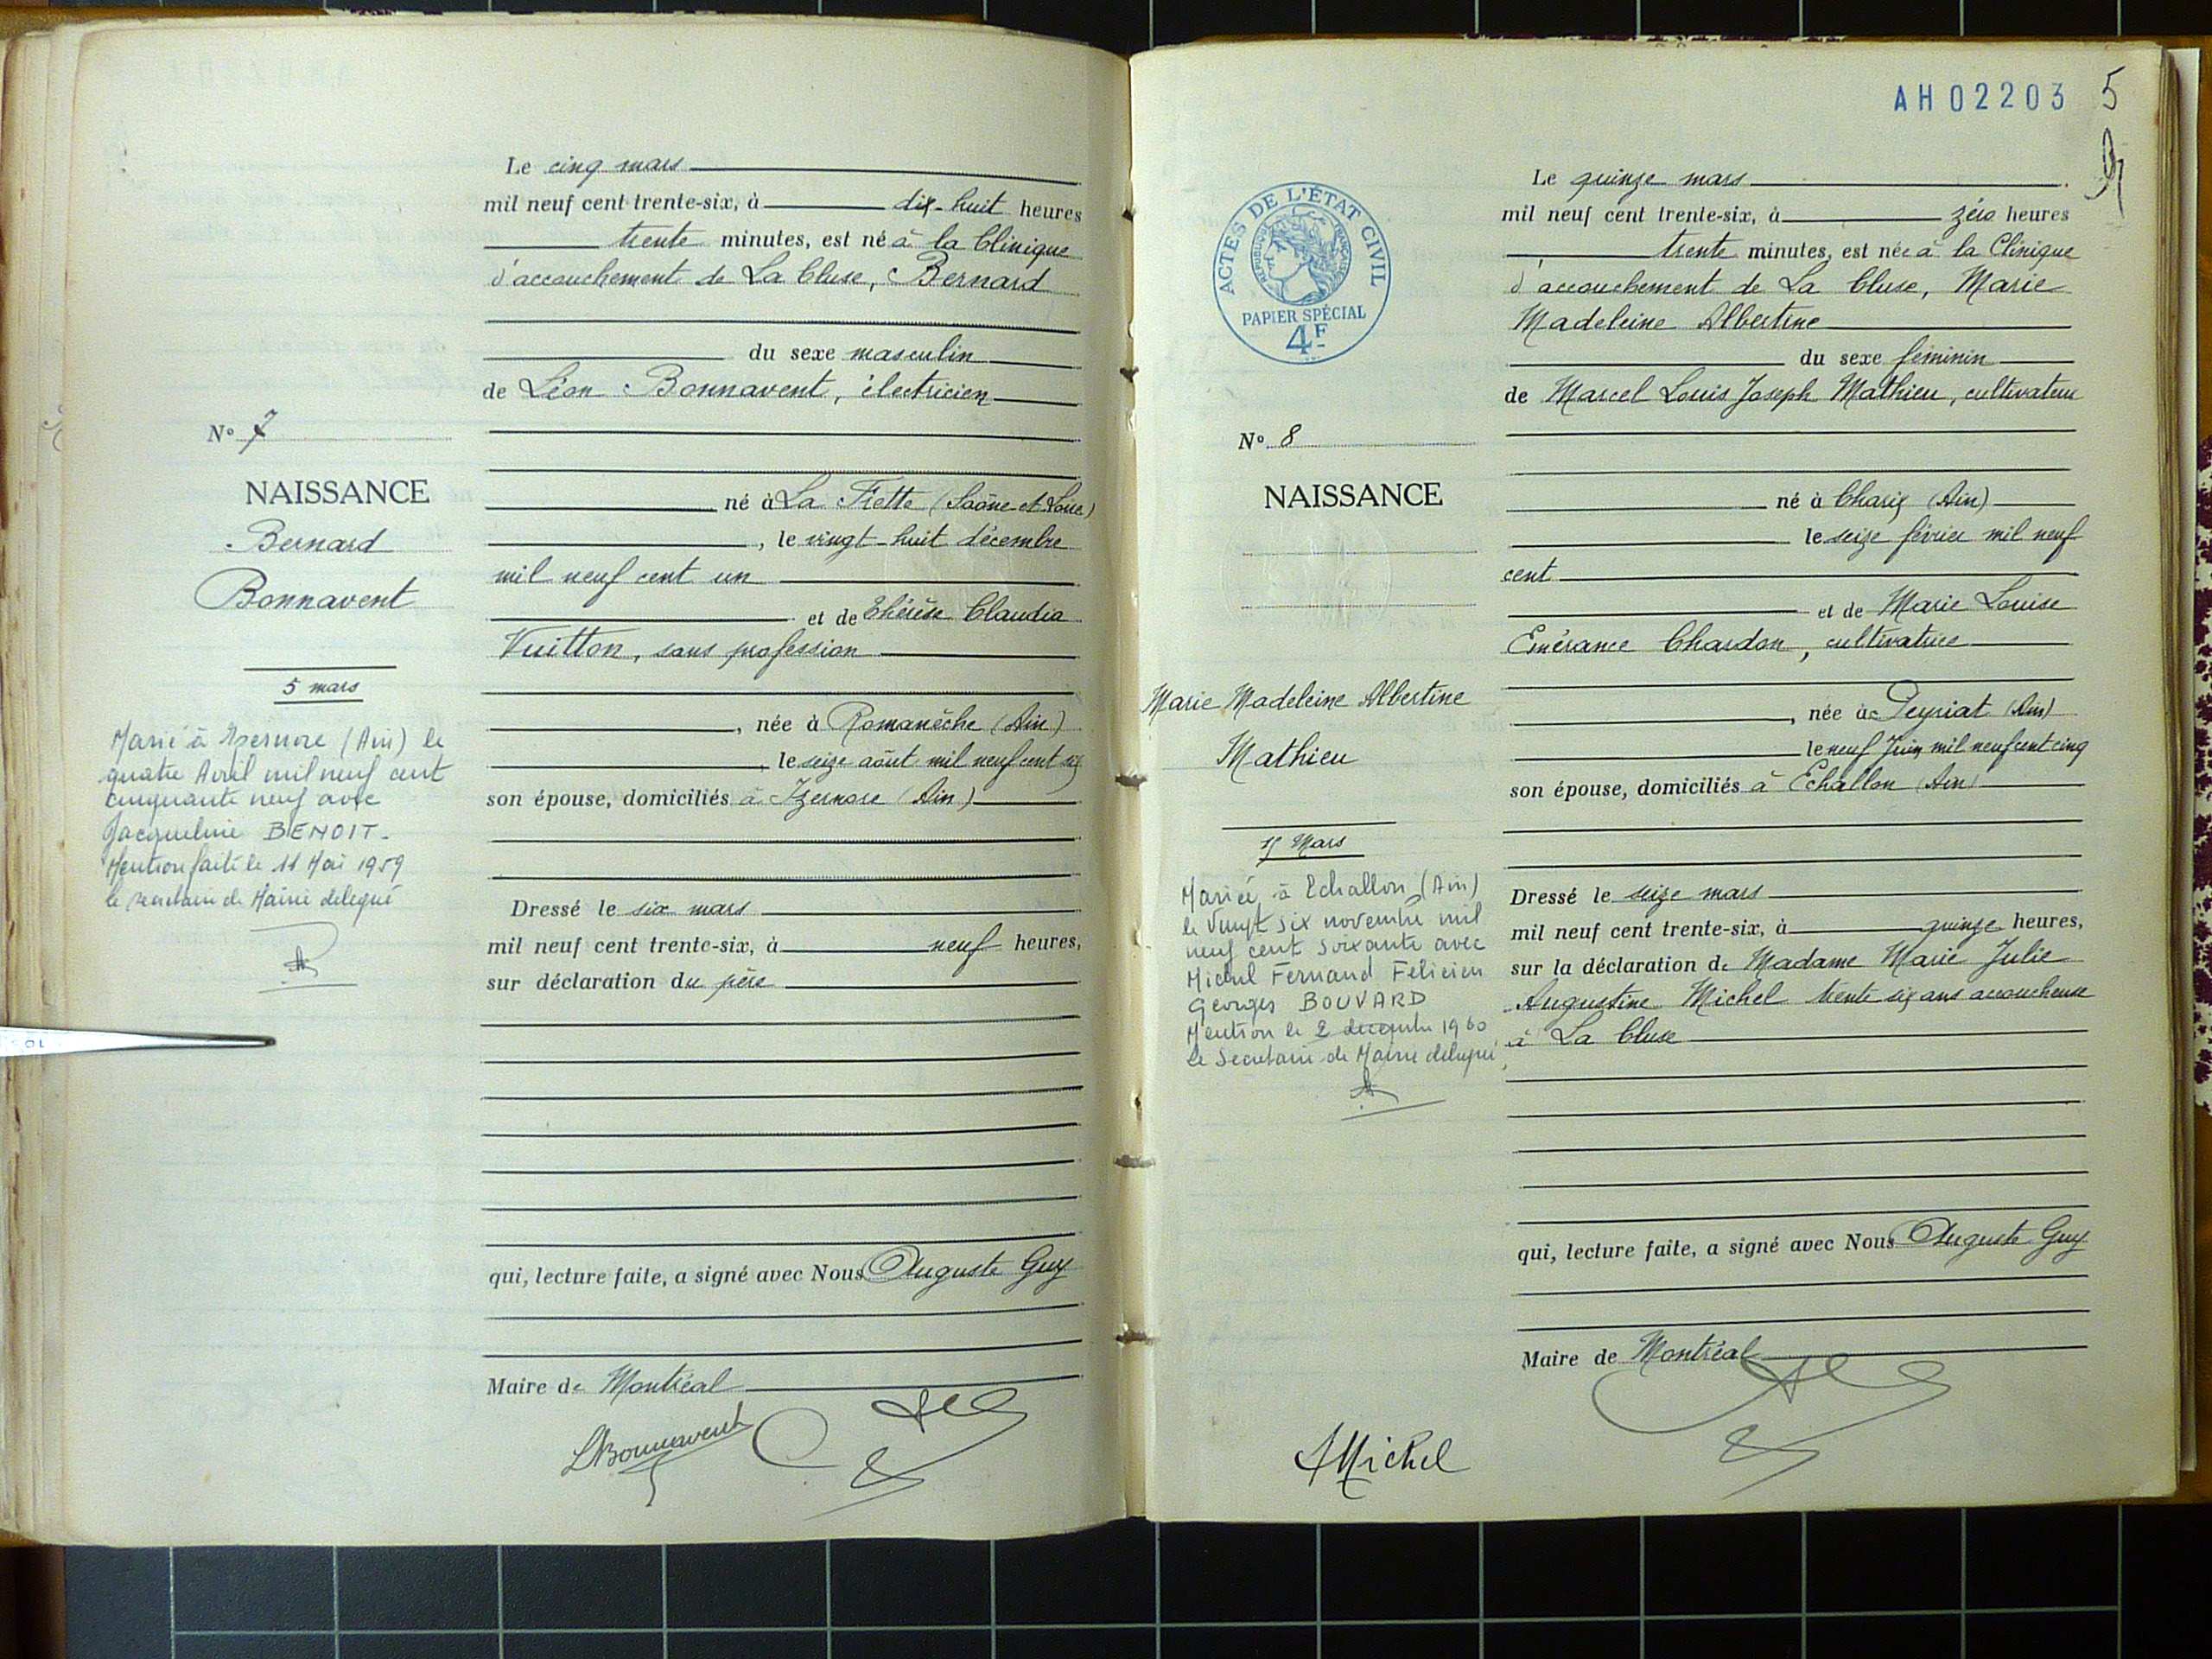 Le cinq mars
mil neuf cent trente-six, à dix-huit heures
trente minutes, est né à la Clinique
d'accouchement de La Cluse, Bernard
du sexe masculin
de Léon Bonnavent, électricien
né à La Frette (Saône-et-Loire)
, le vingt-huit décembre
mil neuf cent un
et de Thérèse Claudia
Vuitton, sans profession
, née à Romanèche (Ain)
, le seize août mil neuf cent six
son épouse, domiciliés à Izernore (Ain)
Dressé le six mars
mil neuf cent trente-six, à neuf heures,
sur déclaration du père
qui, lecture faite, a signé avec Nous Auguste Guy
Maire de Montréal
LBonnavent
N° 7
NAISSANCE
Bernard
Bonnavent
5 mars
Marié à Izernore (Ain) le
quatre Avril mil neuf cent
cinquante neuf avec
Jacqueline BENOIT.
Mention faite le 11 Mai 1959
le secrétaire de Mairie délégué
AH02203 5
ACTES DE L'ÉTAT CIVIL
RÉPUBLIQUE FRANÇAISE
PAPIER SPÉCIAL
4F
Le quinze mars
mil neuf cent trente-six, à zéro heures
trente minutes, est née à la Clinique
d'accouchement de La Cluse, Marie
Madeleine Albertine
du sexe féminin
de Marcel Louis Joseph Mathieu, cultivateur
né à Charix (Ain)
le seize février mil neuf
cent
et de Marie Louise
Emérance Chardon, cultivatrice
, née à Peyriat (Ain)
le neuf Juin mil neuf cent cinq
son épouse, domiciliés à Echallon (Ain)
Dressé le seize mars
mil neuf cent trente-six, à quinze heures,
sur la déclaration de Madame Marie Julie
Augustine Michel trente six ans accoucheuse
à La Cluse
qui, lecture faite, a signé avec Nous Auguste Guy
Maire de Montréal
AMichel
N° 8
NAISSANCE
Marie Madeleine Albertine
Mathieu
15 Mars
Mariée à Echallon (Ain)
le vingt six novembre mil
neuf cent soixante avec
Michel Fernand Félicien
Georges BOUVARD
Mention le 2 décembre 1960
le Secrétaire de Mairie délégué